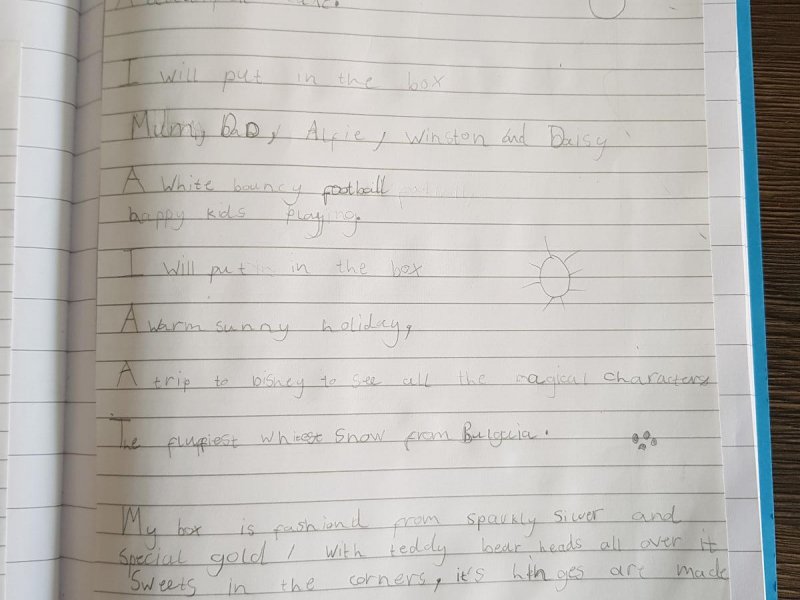 I will put in the box
Mum, DaD, Alfie, Winston and Daisy
A white bouncy football
happy kids playing.
I will put in the box
A warm sunny holiday,
A trip to Disney to see all the magical characters
The fluffiest whitest snow from Bulgaria.
My box is fashiond from sparkly silver and
special gold / with teddy bear heads all over it
Sweets in the corners, it's are made